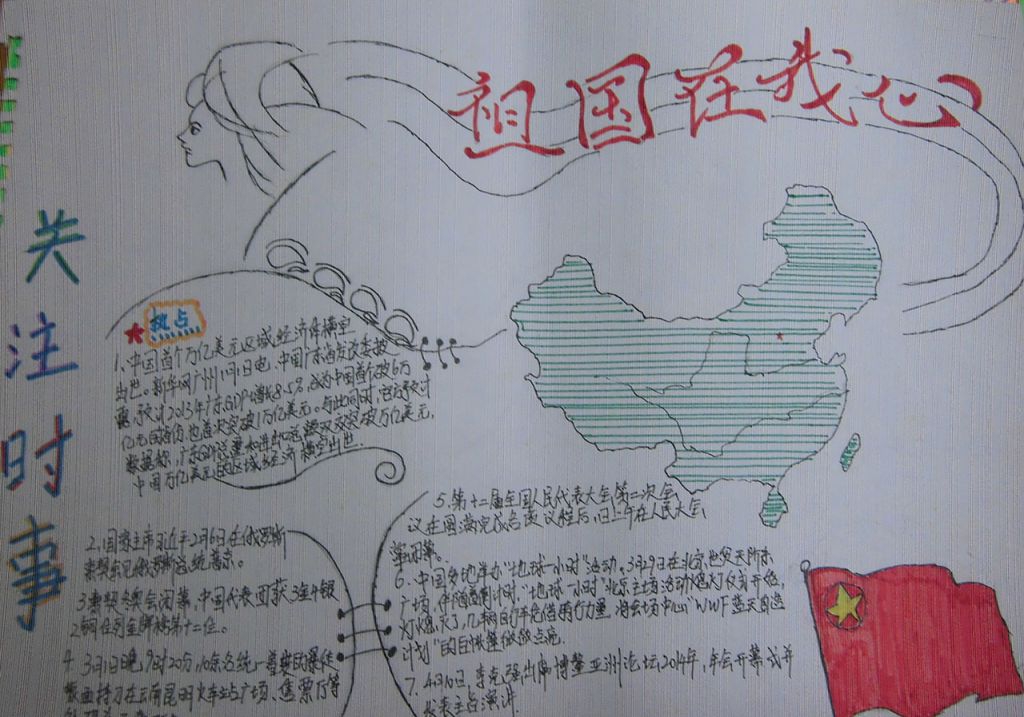 祖国在我心
关注时事
热点
1、中国首个万亿美元区域经济体横空
出世。新华网广州1月1日电,中国广东省发改委披
露,预计2013年广东GDP增长8.5%,成为中国首个破6万
亿元的省份,也首次突破1万亿美元。与此同时,官方预计
数据称,广东外贸总量和进出口总额双双突破万亿美元,
中国万亿美元的区域经济横空出世.
2、国家主席习近平2月6日在俄罗斯
索契会见俄罗斯总统普京。
3、索契冬奥会闭幕,中国代表团获3金4银
2铜位列金牌榜第十二位。
4、3月1日晚,9时20分,10余名统一着装的暴徒
蒙面持刀在云南昆明火车站广场、售票厅等
5、第十二届全国人民代表大会第二次会
议在圆满完成各项议程后,13日上午在人民大会
堂闭幕。
6、中国多地举办"地球一小时"活动。3月29日在北京
广场,伴随着倒计时,"地球一小时"北京主场活动熄灯仪式开始,
灯熄灭了,几辆自行车凭借骑行力量,将会场中心"WWF蓝天自造
计划"的白帐篷微微点亮.
7、4月10日,李克强出席博鳌亚洲论坛2014年,年会开幕式并
发表主旨演讲.